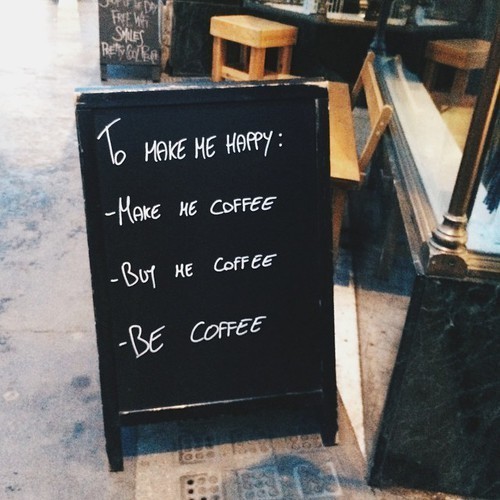 OF THE DAY
FREE WIFI
SMILES
To MAKE ME HAPPY:
-MAKE ME COFFEE
-BUY ME COFFEE
-BE COFFEE